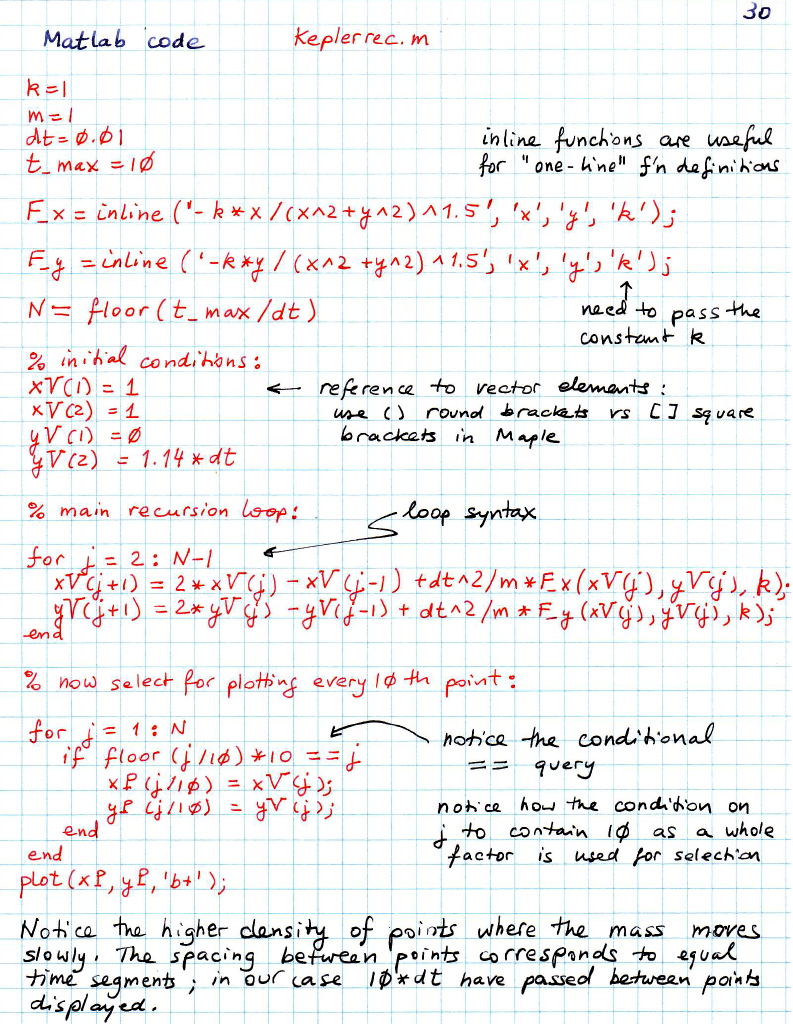 30
Matlab code Keplerrec.m
k=1
m=1
dt=0.01
t_max=10
inline functions are useful
for "one-line" f'n definitions
F_x = inline ('-k*x/(x^2+y^2)^1.5', 'x', 'y', 'k');
F_y = inline ('-k*y/(x^2+y^2)^1.5', 'x', 'y', 'k');
N = floor(t_max/dt)
need to pass the
constant k
% initial conditions:
xV(1) = 1
xV(2) = 1
yV(1) = 0
yV(2) = 1.14*dt
← reference to vector elements:
use () round brackets vs [] square
brackets in Maple
% main recursion loop:
loop syntax
for j = 2 : N-1
xV(j+1) = 2*xV(j) - xV(j-1) + dt^2/m*F_x(xV(j), yV(j), k);
yV(j+1) = 2*yV(j) - yV(j-1) + dt^2/m*F_y(xV(j), yV(j), k);
end
% now select for plotting every 10th point:
for j = 1 : N
if floor(j/10)*10 == j
xP(j/10) = xV(j);
yP(j/10) = yV(j);
end
end
plot(xP, yP, 'b+');
notice the conditional
== query
notice how the condition on
j to contain 10 as a whole
factor is used for selection
Notice the higher density of points where the mass moves
slowly. The spacing between points corresponds to equal
time segments; in our case 10*dt have passed between points
displayed.